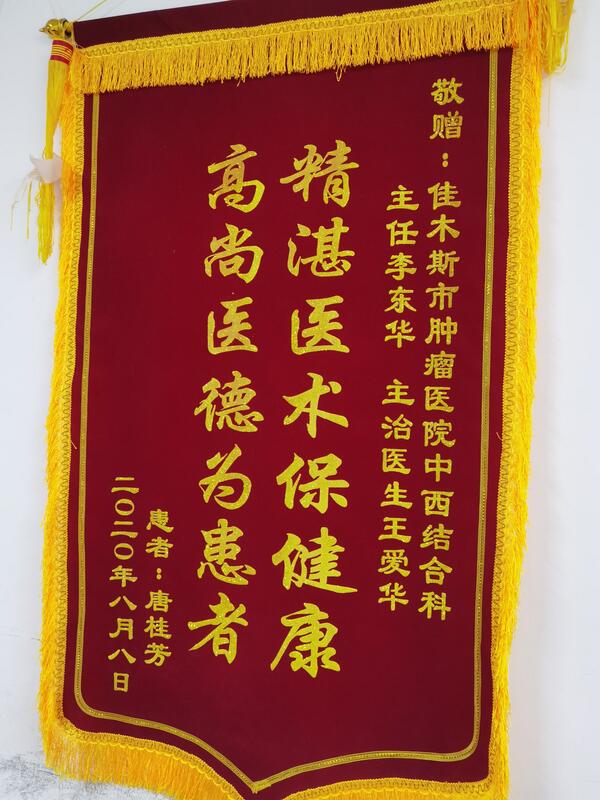 敬赠：佳木斯市肿瘤医院中西结合科
主任李东华 主治医生王爱华
精湛医术保健康
高尚医德为患者
患者：唐桂芳
二〇二〇年八月八日